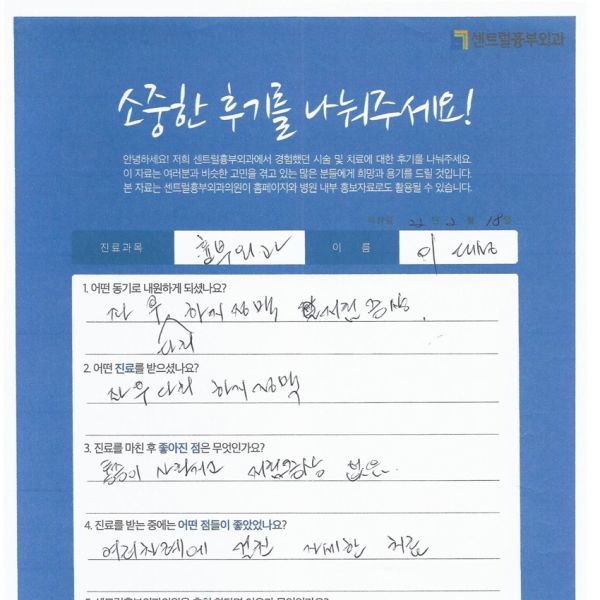 센트럴흉부외과
소중한 후기를 나눠주세요!
안녕하세요! 저희 센트럴흉부외과에서 경험했던 시술 및 치료에 대한 후기를 나눠주세요.
이 자료는 여러분과 비슷한 고민을 겪고 있는 많은 분들에게 희망과 용기를 드릴 것입니다.
본 자료는 센트럴흉부외과의원이 홈페이지와 병원 내부 홍보자료로도 활용될 수 있습니다.
22 년 2 월 18 일
진료과목 흉부외과 이 름 이
1. 어떤 동기로 내원하게 되셨나요?
좌 우 하지정맥 시린증상.
다리
2. 어떤 진료를 받으셨나요?
좌우다리 하지정맥
3. 진료를 마친 후 좋아진 점은 무엇인가요?
통증이 사라지고 시림증상 없음.
4. 진료를 받는 중에는 어떤 점들이 좋았었나요?
여러차례에 걸친 자세한 치료